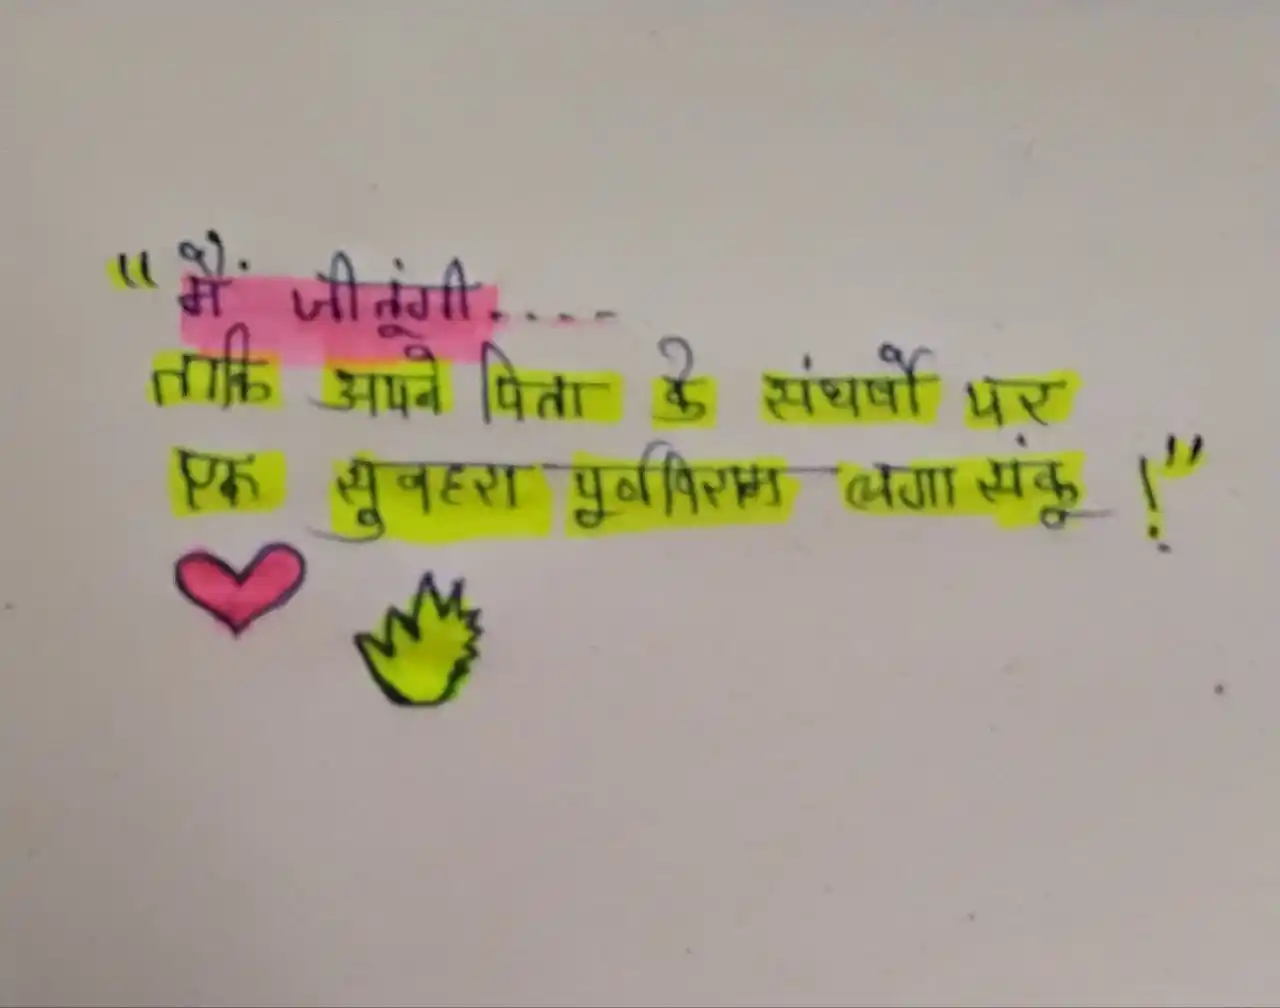 "मैं जीतूंगी.....
ताकि अपने पिता के संघर्षों पर
एक सुनहरा पूर्णविराम लगा संकू !"